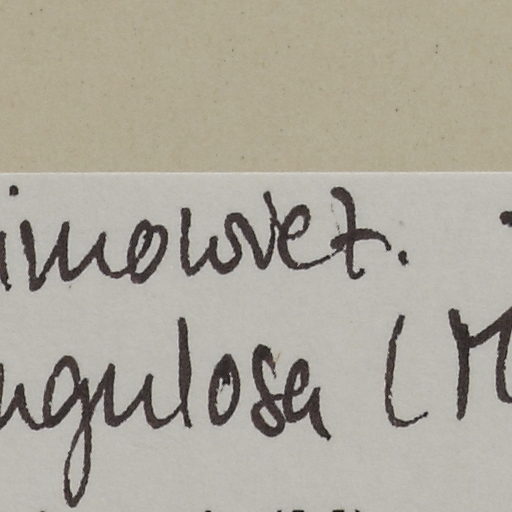 imowiet.
ngulosa (M